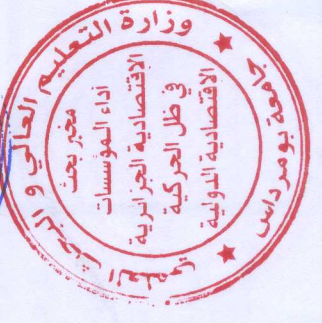 وزارة التعليم العالي و البحث العلمي
جامعة بومرداس
مخبر بحث
أداء المؤسسات
الاقتصادية الجزائرية
في ظل الحركية
الاقتصادية الدولية